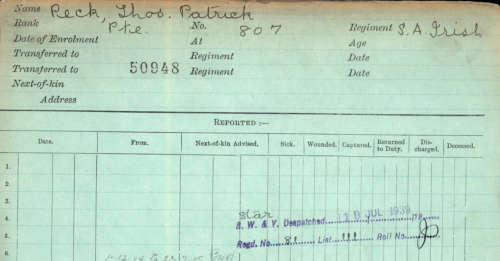 Name Peck, Thos. Patrick
Rank Pte. No. 807 Regiment S.A Irish
Date of Enrolment At Age
Transferred to Regiment Date
Transferred to 50948 Regiment Date
Next-of-kin
Address
REPORTED :—
Date. From. Next-of-kin Advised. Sick. Wounded. Captured. Returned to Duty. Dis-charged. Deceased.
1.
2.
3.
4. Star
S. W. & V. Despatched 18 JUL 1939
5. Regd. No. 81 List 111 Roll No.
6.